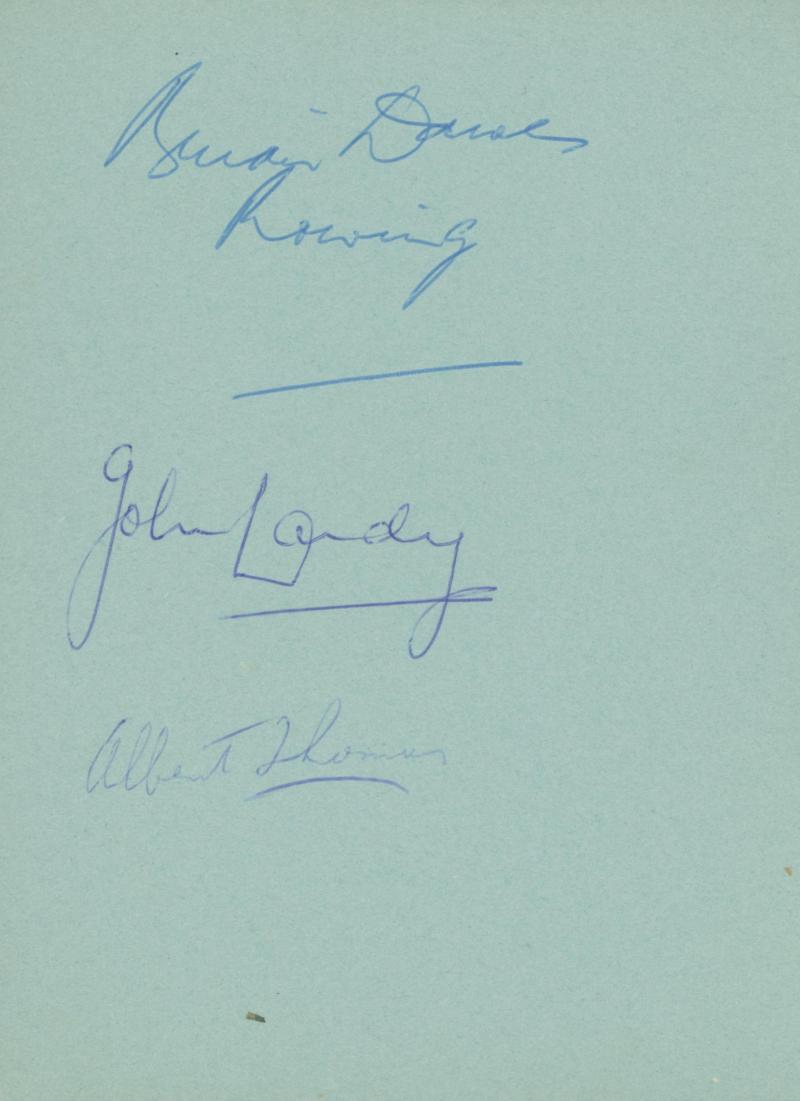 Brian Davies
Rowing
John Landy
Albert Thomas